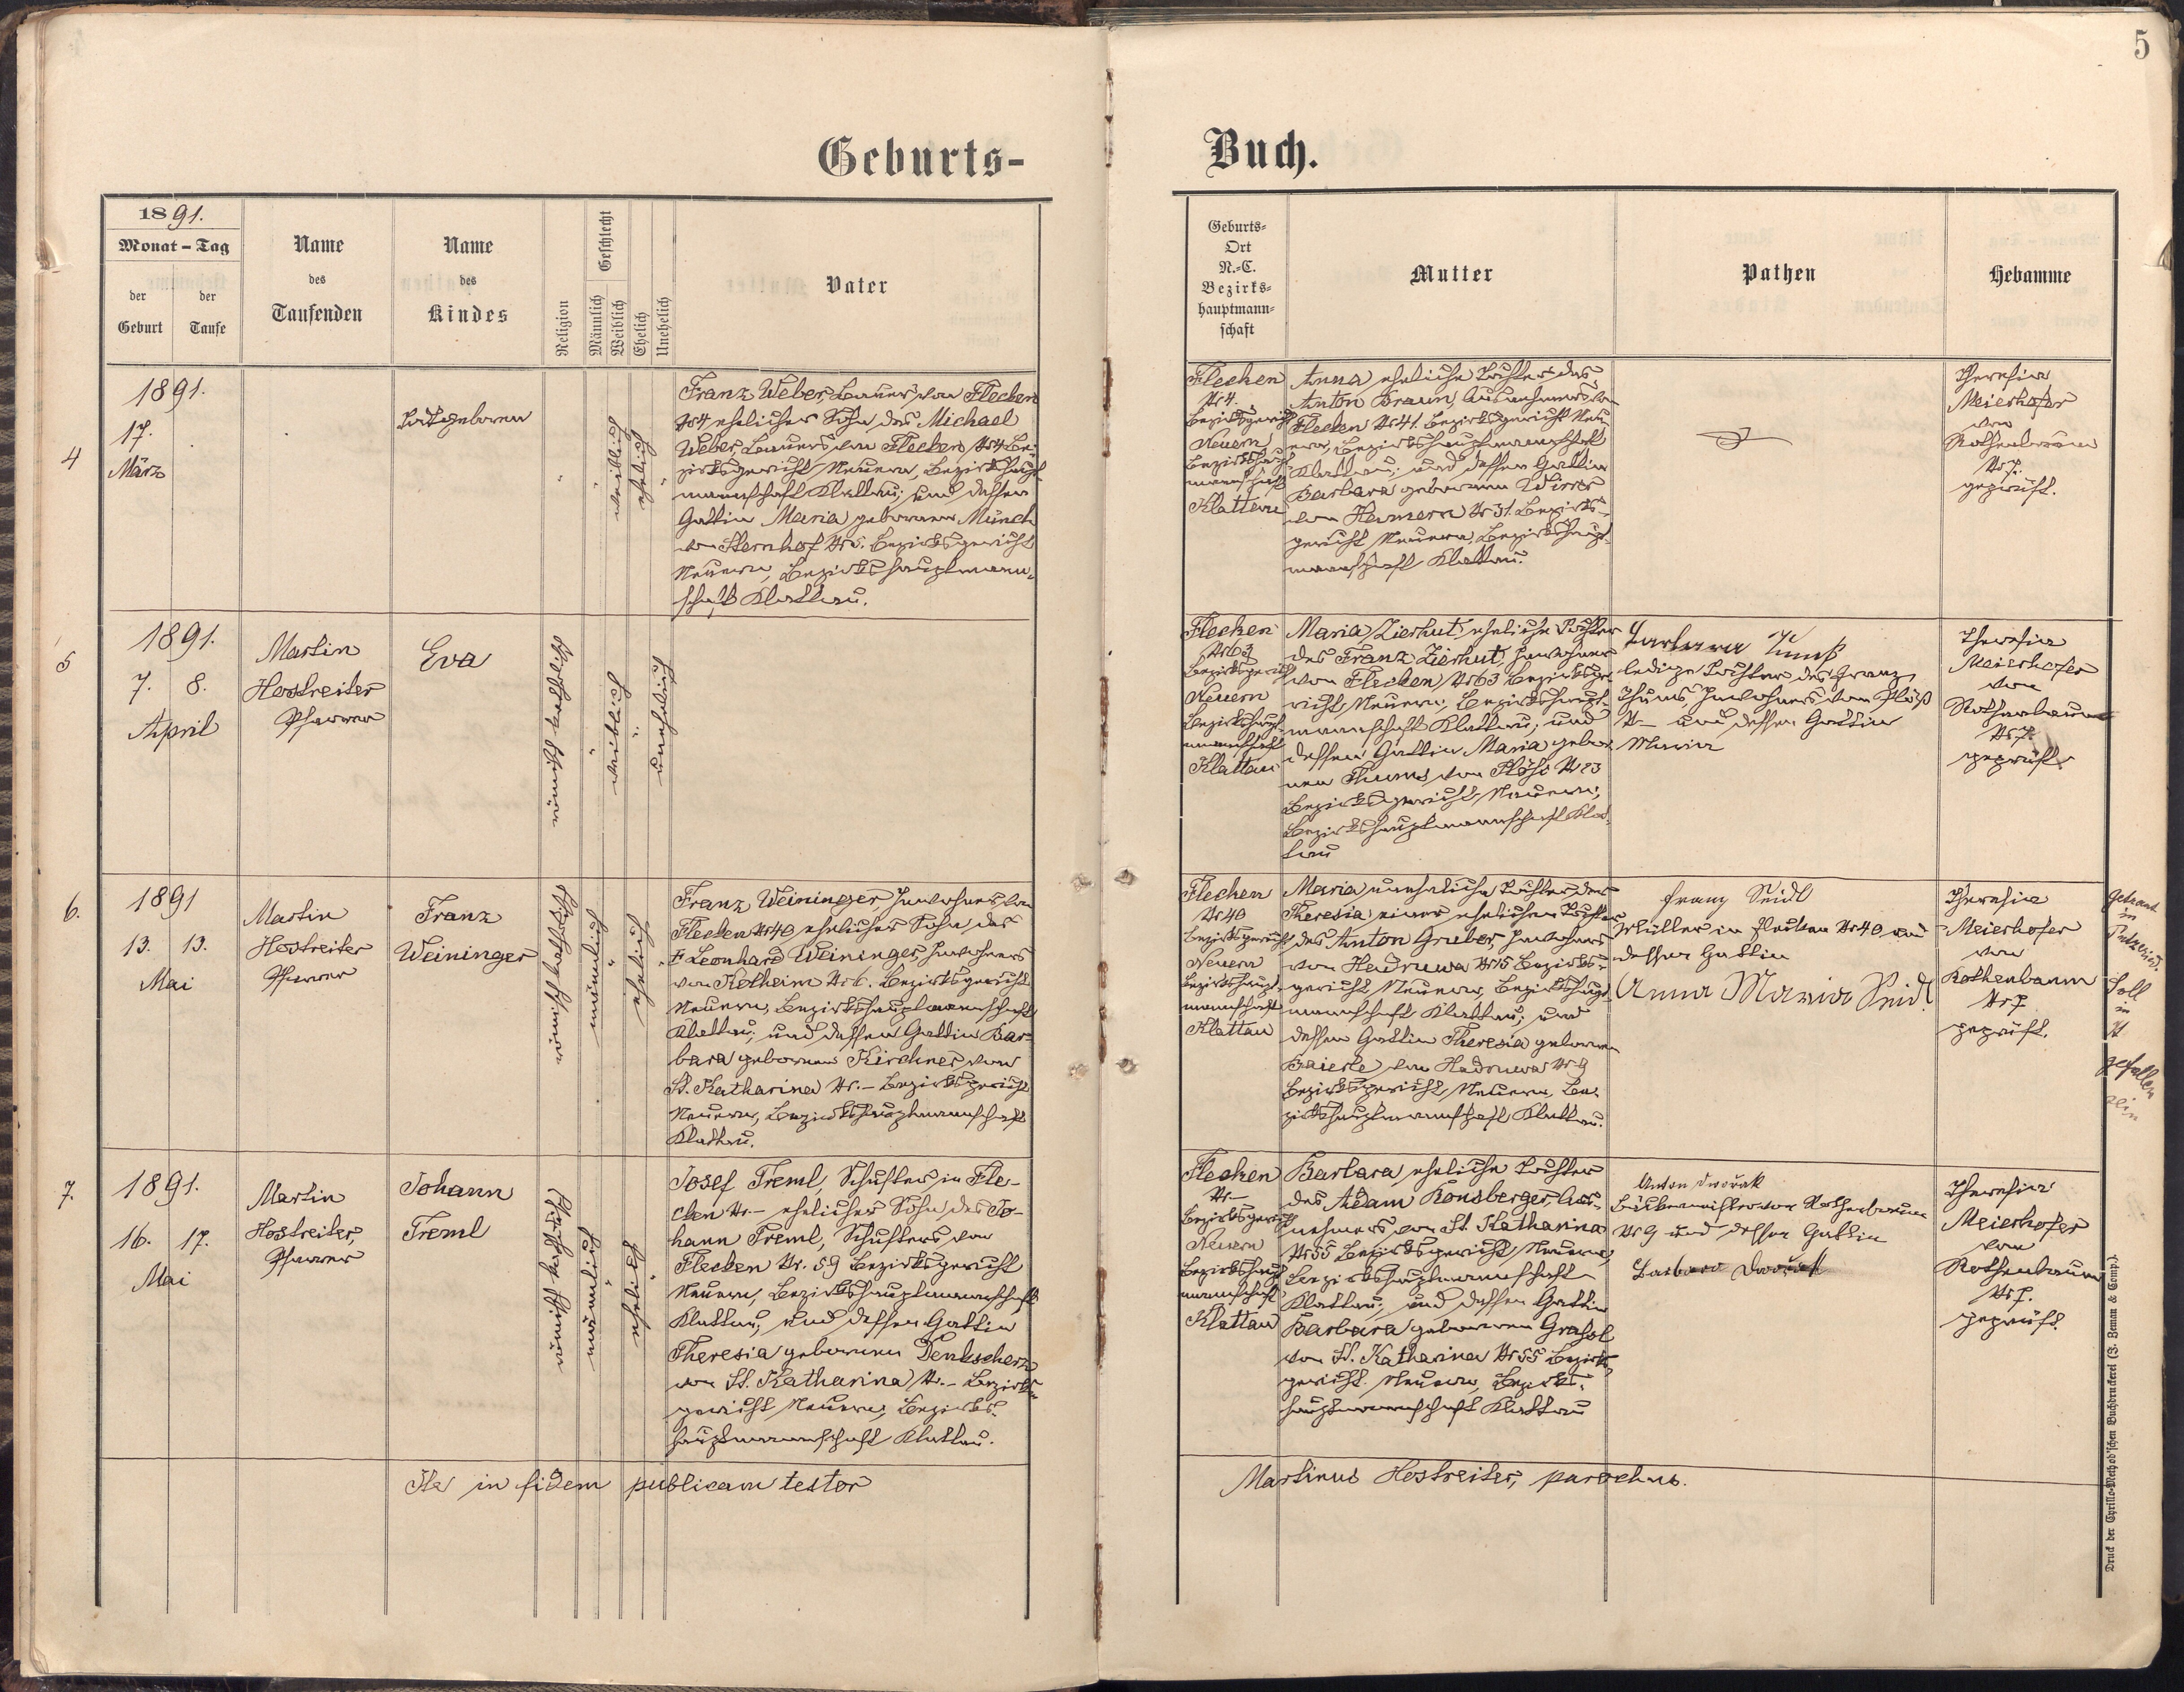 5
Geburts-Buch.
1891.
Monat – Tag
der Geburt
der Taufe
Name des Taufenden
Name des Kindes
Religion
Geschlecht
Männlich
Weiblich
Ehelich
Unehelich
Vater
Geburts-
Ort
N.-C.
Bezirks-
hauptmann-
schaft
Mutter
Pathen
Hebamme
4
1891.
17.
März
Todtgeboren
weiblich
ehelich
Franz Weber, Bauer von Flecken
Nr 4 ehelicher Sohn des Michael
Weber, Bauers von Flecken, Nr 4 Be-
zirksgericht Neuern, Bezirkshaupt-
mannschaft Klattau; und dessen
Gattin Maria geborenen Münch
von Sternhof Nr 5. Bezirksgericht
Neuern, Bezirkshauptmann-
schaft Klattau.
Flecken
Nr 4.
Bezirksgericht
Neuern
Bezirkshaupt-
mannschaft
Klattau
Anna eheliche Tochter des
Anton Braun, Ausnehmers von
Flecken Nr 41. Bezirksgericht Neu-
ern, Bezirkshauptmannschaft
Klattau; und dessen Gattin
Barbara geborenen Wirrer
von Hammern Nr 31. Bezirks-
gericht Neuern, Bezirkshaupt-
mannschaft Klattau.
Theresia
Meierhofer
von
Rothenbaum
Nr 7.
geprüft.
5
1891.
7. 8.
April
Martin
Hostreiter
Pfarrer
Eva
römisch katholisch
weiblich
unehelich
Flecken
Nr 63
Bezirksgericht
Neuern
Bezirkshaupt-
mannschaft
Klattau
Maria Zierhut, eheliche Tochter
des Franz Zierhut, Inwohners
von Flecken, Nr 63 Bezirksge-
richt Neuern, Bezirkshaupt-
mannschaft Klattau; und
dessen Gattin Maria gebor-
nen Thums, von Plöss Nr 23
Bezirksgericht Neuern,
Bezirkshauptmannschaft Klat-
tau
Barbara
ledige Tochter des Franz
Thums, Inwohners von Plöß
Nr – und dessen Gattin
Maria
Theresia
Meierhofer
von
Rothenbaum
Nr 7.
geprüft.
6.
1891
13. 13.
Mai
Martin
Hostreiter
Pfarrer
Franz
Weininger
römisch katholisch
männlich
ehelich
Franz Weininger, Inwohner von
Flecken Nr 40, ehelicher Sohn des
Leonhard Weininger, Inwohners
von Rotheim Nr 6. Bezirksgericht
Neuern, Bezirkshauptmannschaft
Klattau; und dessen Gattin Bar-
bara geborenen Kirchner von
St. Katharina Nr. – Bezirksgericht
Neuern, Bezirkshauptmannschaft
Klattau.
Flecken
Nr 40
Bezirksgericht
Neuern
Bezirkshaupt-
mannschaft
Klattau
Maria uneheliche Tochter der
Theresia einer ehelichen Tochter
des Anton Gruber, Inwohners
von Hadruwa Nr 15 Bezirks-
gericht Neuern, Bezirkshaupt-
mannschaft Klattau; und
dessen Gattin Theresia geborenen
Baierle von Hadruwa Nr 9
Bezirksgericht, Neuern, Be-
zirkshauptmannschaft Klattau.
Franz Seidl
Müller in Flecken Nr 40 und
dessen Gattin
Anna Maria Seidl
Theresia
Meierhofer
von
Rothenbaum
Nr 7
geprüft.
Getraut
in
Soll
in
gefallen
sein
7.
1891.
16. 17.
Mai
Martin
Hostreiter,
Pfarrer
Johann
Treml
römisch katholisch
männlich
ehelich
Josef Treml, Schuster in Fle-
cken Nr. – ehelicher Sohn des Jo-
hann Treml, Schusters von
Flecken Nr. 59 Bezirksgericht
Neuern, Bezirkshauptmannschaft
Klattau; und dessen Gattin
Theresia geborenen Denkscherz
von St. Katharina Nr. – Bezirks-
gericht Neuern, Bezirks-
hauptmannschaft Klattau.
Flecken
Nr –
Bezirksgericht
Neuern
Bezirkshaupt-
mannschaft
Klattau
Barbara eheliche Tochter
des Adam Konsberger, Aus-
nehmers von St. Katharina
Nr 55 Bezirksgericht Neuern,
Bezirkshauptmannschaft
Klattau; und dessen Gattin
Barbara geborenen Grassl
von St. Katharina Nr 55 Bezirks-
gericht Neuern, Bezirks-
hauptmannschaft Klattau
Anton Dvořak
Bäckermeister von Rothenbaum
Nr 9 und dessen Gattin
Barbara Dvořak
Theresia
Meierhofer
von
Rothenbaum
Nr 7.
geprüft.
Ita in fidem publicam testor
Martinus Hostreiter, parochus.
Druck der Cyrillo-Method'schen Buchdruckerei (J. Zeman & Comp.).